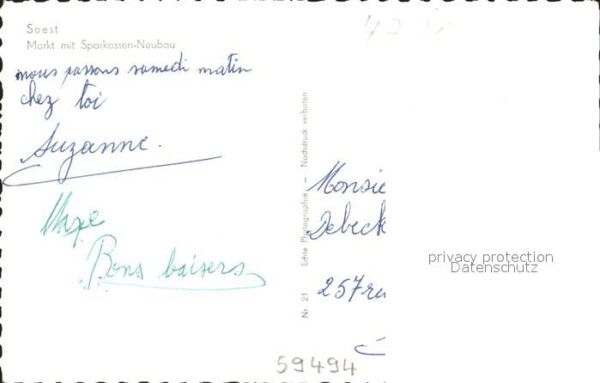 Soest
Markt mit Sparkassen-Neubau
nous passons samedi matin
chez toi
Suzanne.
Bons baisers
Nr. 21 Echte Photographie – Nachdruck verboten
Monsie
Debeck
257 ru
privacy protection
Datenschutz
59494